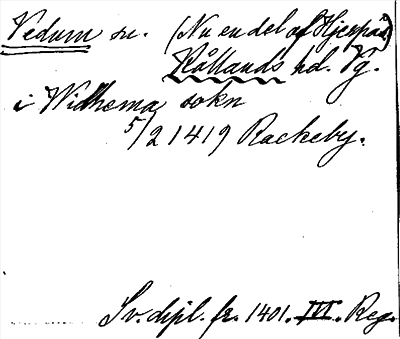 Vedum sn. (Nu en del af Hjerpås)
Kållands hd. Vg.
i Widhema sokn
5/2 1419 Rackeby.
Sv. dipl. fr. 1401. III. Reg.